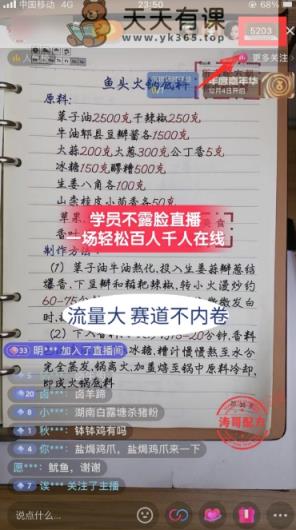 中国移动 4G
23:50
天天有课
www.yk365.top
5203
更多关注
年度嘉年华
12月4日开启
鱼头火锅底料
原料:
菜子油2500克干辣椒250克
牛油郫县豆瓣酱各1500克
大蒜200克大葱300克公丁香5克
冰糖150克醪糟500克
生姜八角各100克
山柰桂皮小茴香各50克
苹果
香叶
学员不露脸直播
一场轻松百人千人在线
制作方法:
(1) 菜子油牛油熬化,投入生姜蒜瓣葱结
爆香,下豆瓣和糍粑辣椒,转小火漫炒约
60-75分
流量大 赛道不内卷
(2) 下入香料 15-20分钟,香料
冰糖,糟汁慢慢熬至水分
完全蒸发,锅离火,加盖焐至锅中原料冷却,
即成火锅底料
33 明*** 加入了直播间
20 卤***:卤羊蹄
小***:湖南白露塘杀猪粉
秋***:钵钵鸡有吗
你***:盐焗鸡爪,盐焗鸡爪来一下
愿***:鱿鱼,谢谢
7 诶*** 关注了主播
涛哥配方
说点什么...